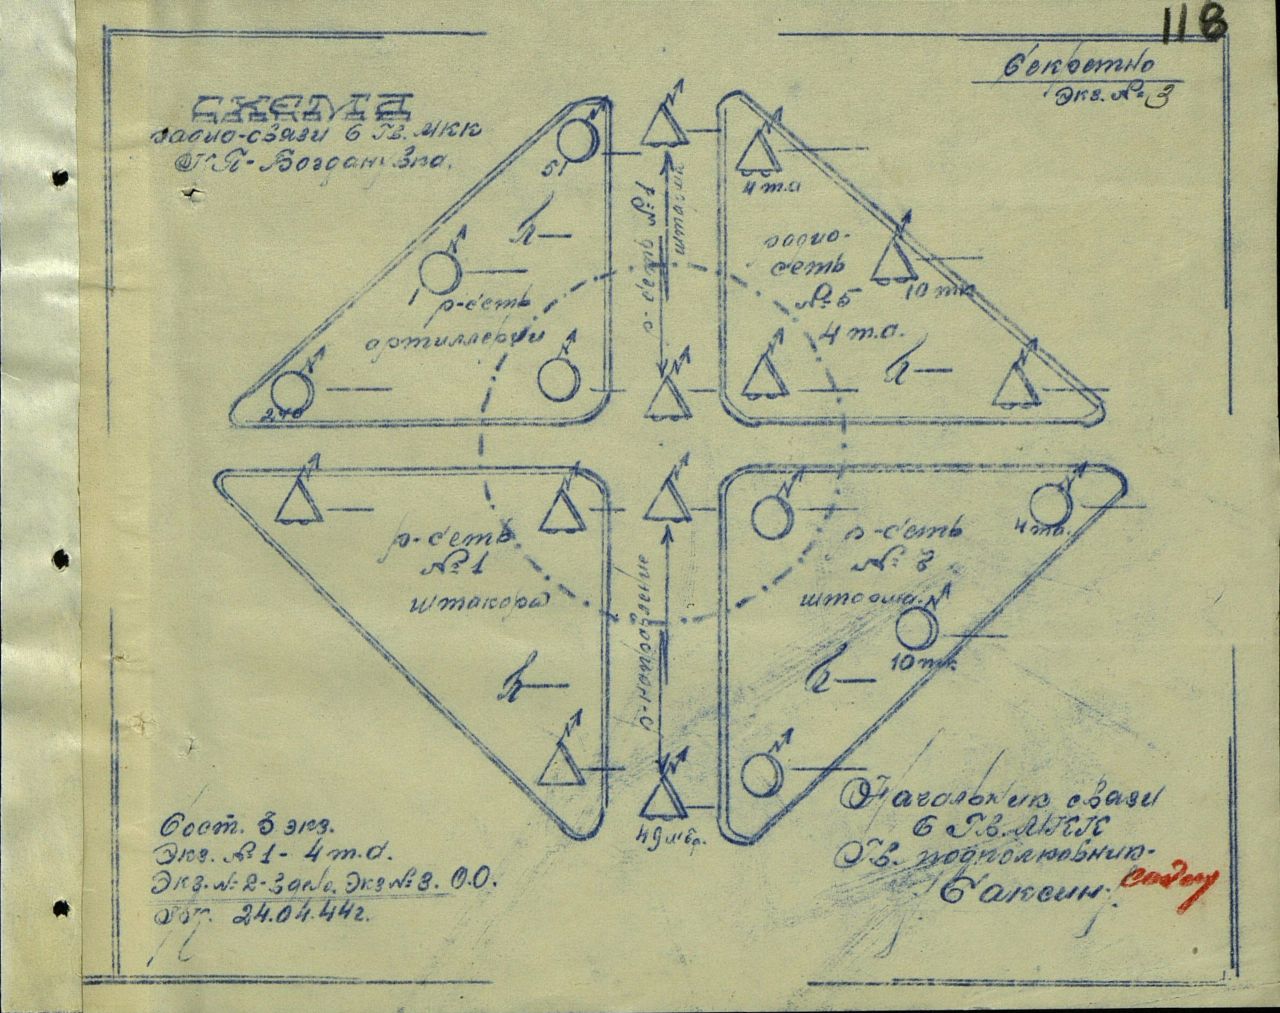 118
Секретно
Экз. № 3
СХЕМА
радио-связи 6 Гв. МКК
КП - Богдановка.
51
1
р-сеть
артиллерии
р-сеть №1
4 т.а
радио-
сеть
№ 5
4 т.а.
10 тк
р-сеть
№ 1
штакора
р-направление
49 мбр.
р-сеть
№ 3
4 та.
10 тк
Сост. 3 экз.
Экз. № 1 - 4 т.а.
Экз. № 2 - в дело. Экз № 3. О.О.
24.04.44г.
Начальник связи
6 Гв. МКК
Гв. подполковник-